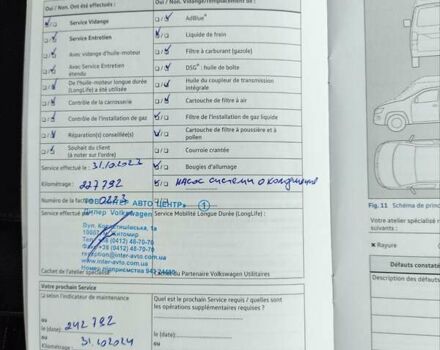 Oui / Non. Ont été effectués :
Oui / Non. Vidange/remplacement de :
Service Vidange
AdBlue®
Service Entretien
Liquide de frein
Avec vidange d'huile-moteur
Filtre à carburant (gazole)
Avec Service Entretien
étendu
DSG® : huile de boîte
De l'huile-moteur longue durée
(LongLife) a été utilisée
Huile du coupleur de transmission
intégrale
Contrôle de la carrosserie
Cartouche de filtre à air
Contrôle de l'installation de gaz
Filtre de l'installation de gaz liquide
Réparation(s) conseillée(s)
Cartouche de filtre à poussière et à
pollen
Souhait du client
(à noter sur l'ordre)
Courroie crantée
Service effectué le : 31.10.2023
Bougies d'allumage
Kilométrage : 227792
Numéro de la facture : 0223
АВТО ЦЕНТР» 1
Service effectué par
Дилер Volkswagen
Service Mobilité Longue Durée (LongLife) :
reception@inter-avto.com.ua
www.inter-avto.com.ua
Cachet de l'atelier spécialisé
Cachet du Partenaire Volkswagen Utilitaires
Votre prochain Service
selon l'indicateur de maintenance
Quel est le prochain Service requis / quelles sont
les opérations supplémentaires requises ?
ou
242 792
le (date) :
ou
31.10.2024
Kilométrage :
le (date) :
ou
Fig. 11 Schéma de princ
Votre atelier spécialisé
suivants :
× Rayure
Défauts constaté
Description des défauts